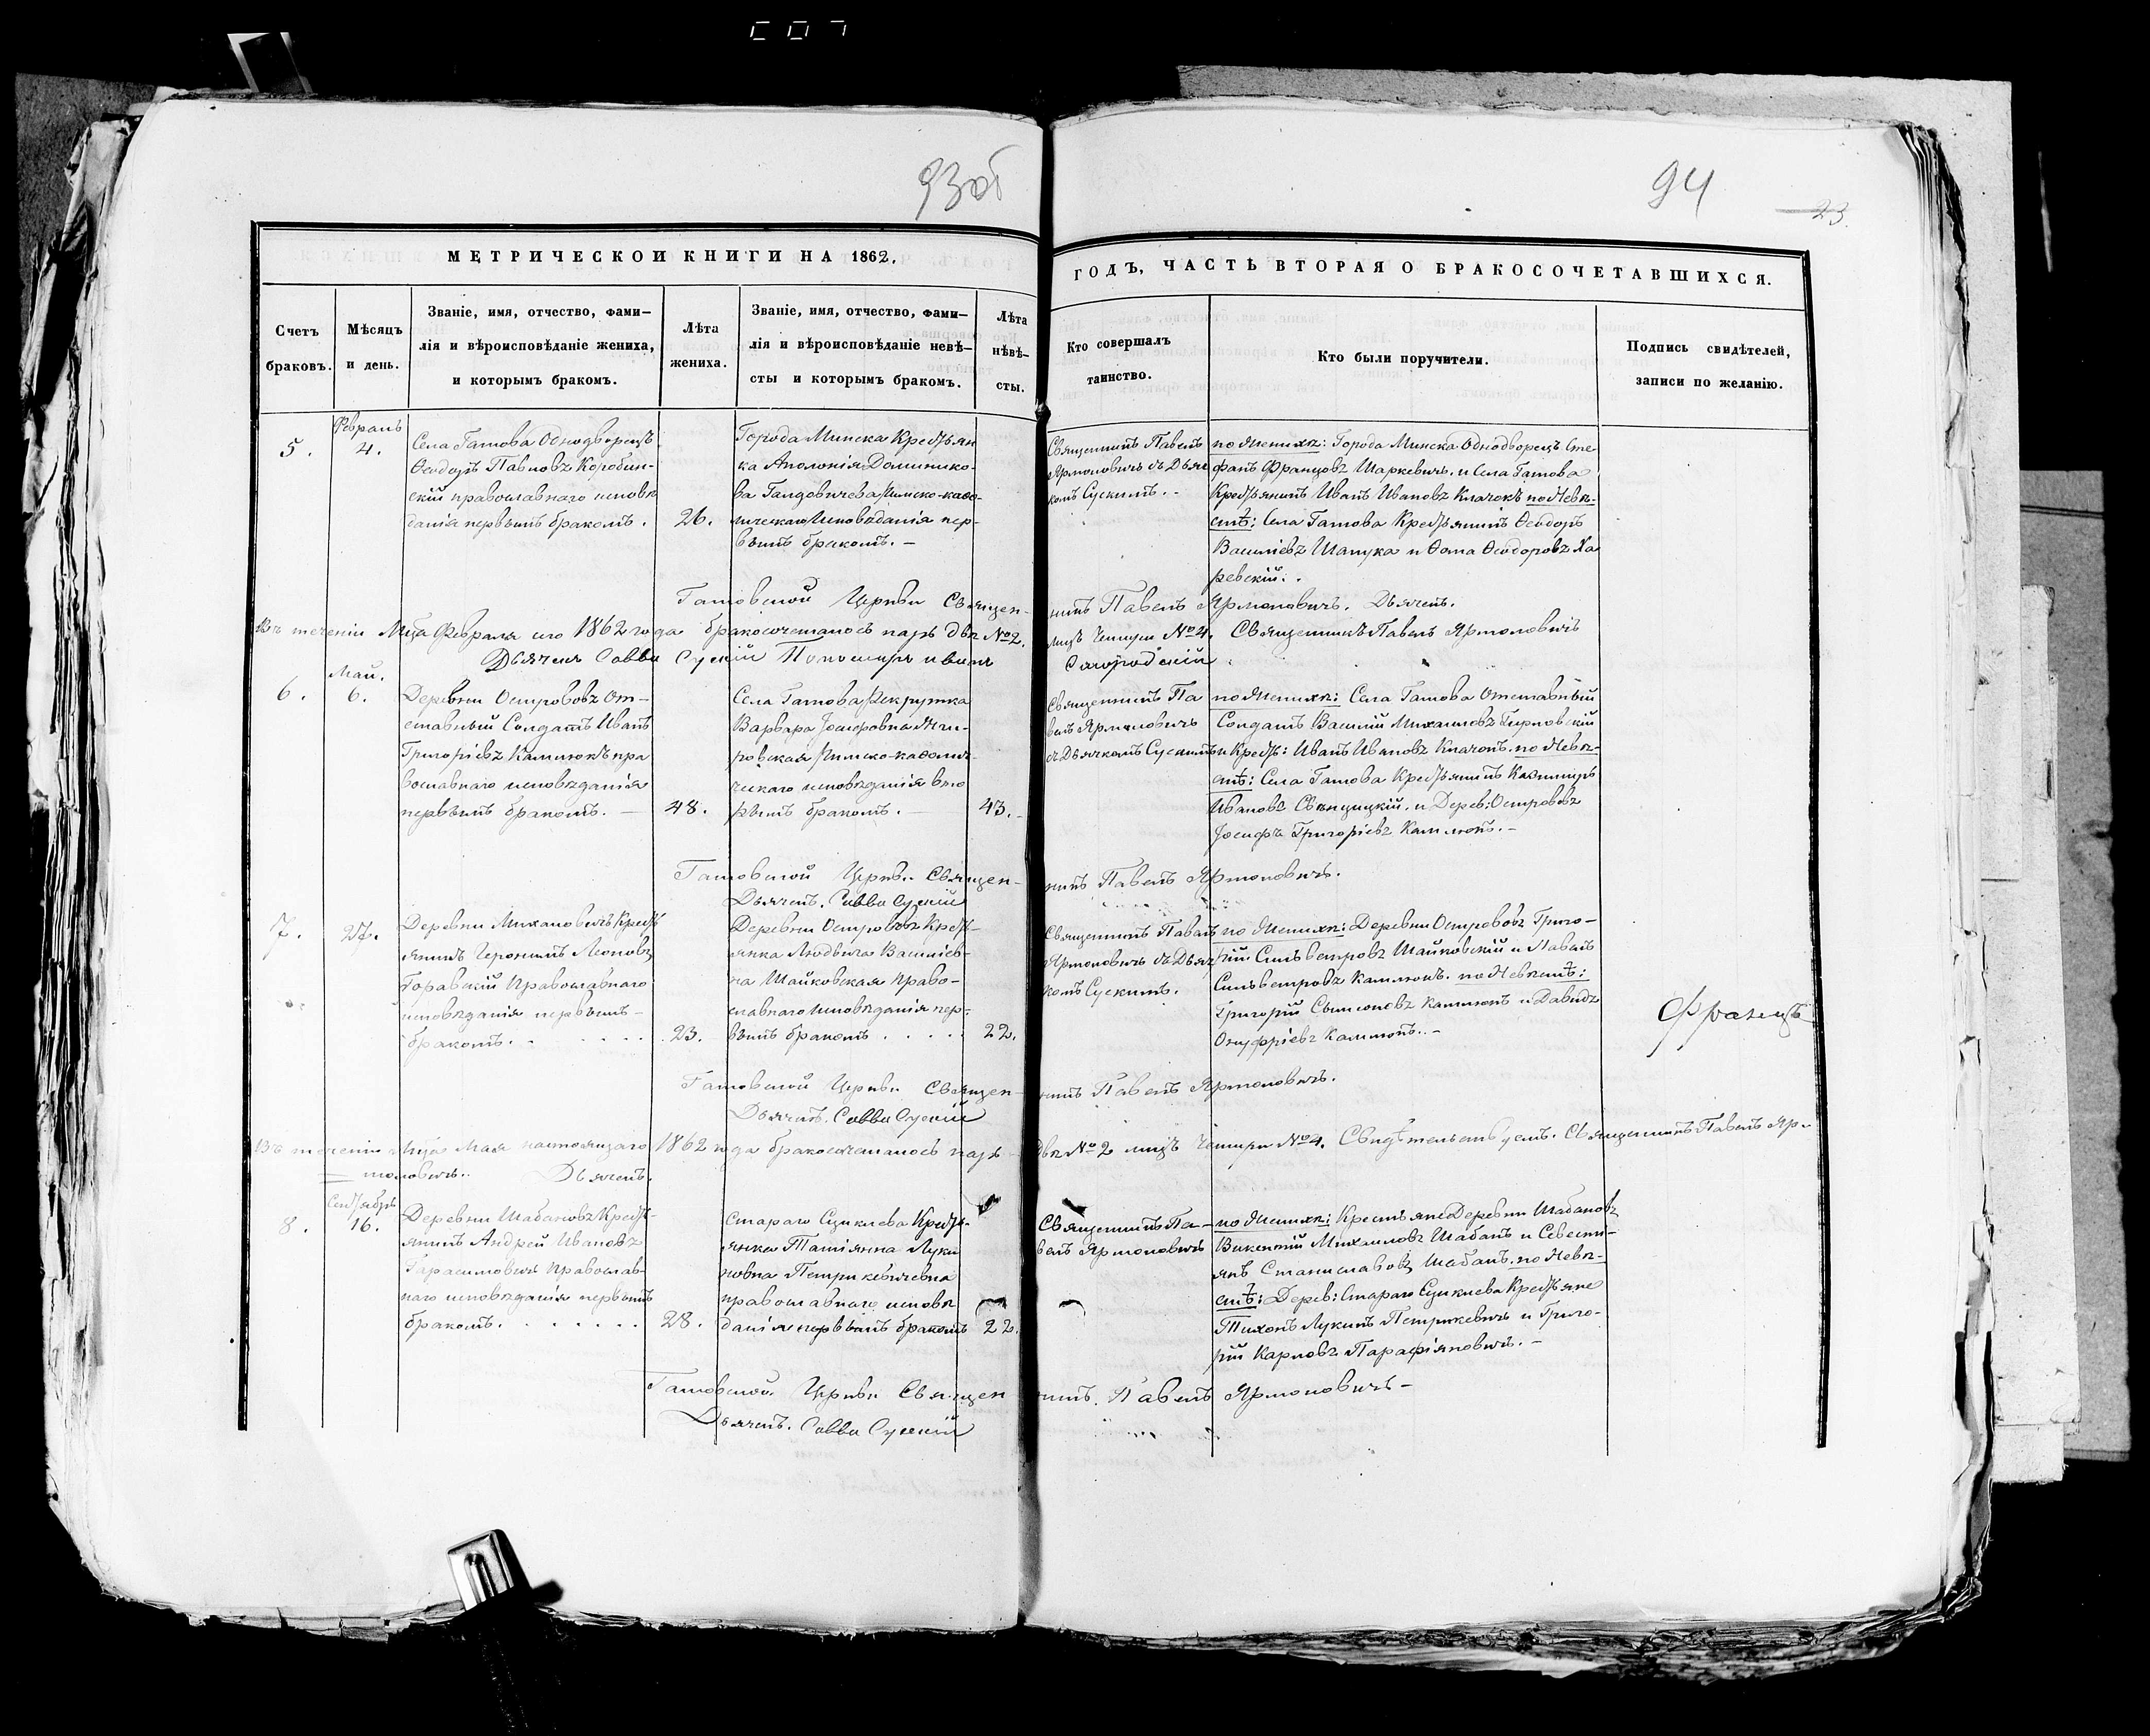 93об
94
23.
МЕТРИЧЕСКОЙ КНИГИ НА 1862.
ГОДЪ, ЧАСТЬ ВТОРАЯ О БРАКОСОЧЕТАВШИХСЯ.
Счетъ
браковъ.
Мѣсяцъ
и день.
Званіе, имя, отчество, фами-
лія и вѣроисповѣданіе жениха,
и которымъ бракомъ.
Лѣта
жениха.
Званіе, имя, отчество, фами-
лія и вѣроисповѣданіе невѣ-
сты и которымъ бракомъ.
Лѣта
нѣвѣ-
сты.
Кто совершалъ
таинство.
Кто были поручители.
Подпись свидѣтелей,
записи по желанію.
5.
Февраль
4.
Села Гатова Однодворецъ
Ѳеодоръ Павловъ Коробин-
скій православнаго исповѣ
данія первымъ бракомъ.
26.
Города Минска Крестьян
ка Аполонія Доминико-
ва Римско-каѳо-
лическаго Исповѣданія пер-
вымъ бракомъ. -
Священникъ Павелъ
Ярмоловичъ съ Дьяч
комъ Сускимъ. -
по Женихѣ: Города Минска Однодворецъ Сте
фанъ Францовъ Шаркевичъ. и Села Гатова
Крестьянинъ Иванъ Ивановъ Клачокъ по Невѣ-
стѣ: Села Гатова Крестьянинъ Ѳеодоръ
Василіевъ Шапука и Ѳома Ѳеодоровъ Ха
ревскій.
Гатовской Церкви Священ-
никъ Павелъ Ярмоловичъ. Дьячекъ.
Въ теченіи Мца Февраля сего 1862 года бракосочеталось паръ двѣ №2.
лицъ Четыри №4. Священникъ Павелъ Ярмоловичъ
Дьячекъ Савва Сускій Пономарь
6.
Май.
6.
Деревни Острововъ От-
ставный Солдатъ Иванъ
Григоріевъ Камлюкъ пра
вославнаго исповѣданія
первымъ бракомъ. -
48.
Села Гатова Рекрутка
Варвара Іосифовна Жи-
ровская Римско-каѳоли-
ческаго исповѣданія вто
рымъ бракомъ. -
43.
Священникъ Па
велъ Ярмоловичъ
съ Дьячкомъ Сускимъ
по Женихѣ: Села Гатова Отставный
Солдатъ Василій Михаиловъ
и Крест: Иванъ Ивановъ Клачокъ. по Невѣ-
стѣ: Села Гатова Крестьянинъ Казимиръ
Ивановъ Свѣнцицкій. и Дерев: Острововъ
Іосифъ Григоріевъ Камлюкъ. -
Гатовской Церкви Священ-
никъ Павелъ Ярмоловичъ.
Дьячекъ. Савва Сускій
7.
27.
Деревни Михановичъ Кресть
янинъ Іеронимъ Леоновъ
Горавскій Православнаго
исповѣданія первымъ -
бракомъ.
23.
Деревни Острововъ Кресть-
янка Людвига Василіев-
на Шайковская Право-
славнаго Исповѣданія пер-
вымъ бракомъ
22.
Священникъ Павелъ
Ярмоловичъ съ Дьяч
комъ Сускимъ.
по Женихѣ: Деревни Острововъ Григо-
рій Сильвестровъ Шайковскій и Павелъ
Сильвестровъ Камлюкъ. по Невѣстѣ:
Григорій Сымоновъ Камлюкъ и Давидъ
Онуфріевъ Камлюкъ. -
Францъ
Гатовской Церкви Священ-
никъ Павелъ Ярмоловичъ.
Дьячекъ. Савва Сускій
Въ теченіи Мца Мая настоящаго 1862 года бракосочеталось паръ
двѣ №2 лицъ Четыри №4. Свидѣтельствуемъ. Священникъ Павелъ Яр-
моловичъ. Дьячекъ.
8.
Сентябрь
16.
Деревни Шабановъ Кресть-
янинъ Андрей Ивановъ
Гарасимовичъ Православ-
наго исповѣданія первымъ
бракомъ.
28.
Стараго Сциклева Кресть-
янка Татіянна Луки
новна Петрикевичевна
православнаго исповѣ
данія первымъ бракомъ
22.
Священникъ Па-
велъ Ярмоловичъ
по Женихѣ: Крестьяне Деревни Шабановъ
Викентій Михаиловъ Шабанъ и Севести-
янъ Станиславовъ Шабанъ. по Невѣ-
стѣ: Дерев: Стараго Сциклева Крестьяне
Тихонъ Лукинъ Петрикевичъ и Григо-
рій Карловъ Парафіяновичъ. -
Гатовской Церкви Священ
никъ. Павелъ Ярмоловичъ -
Дьячекъ. Савва Сускій